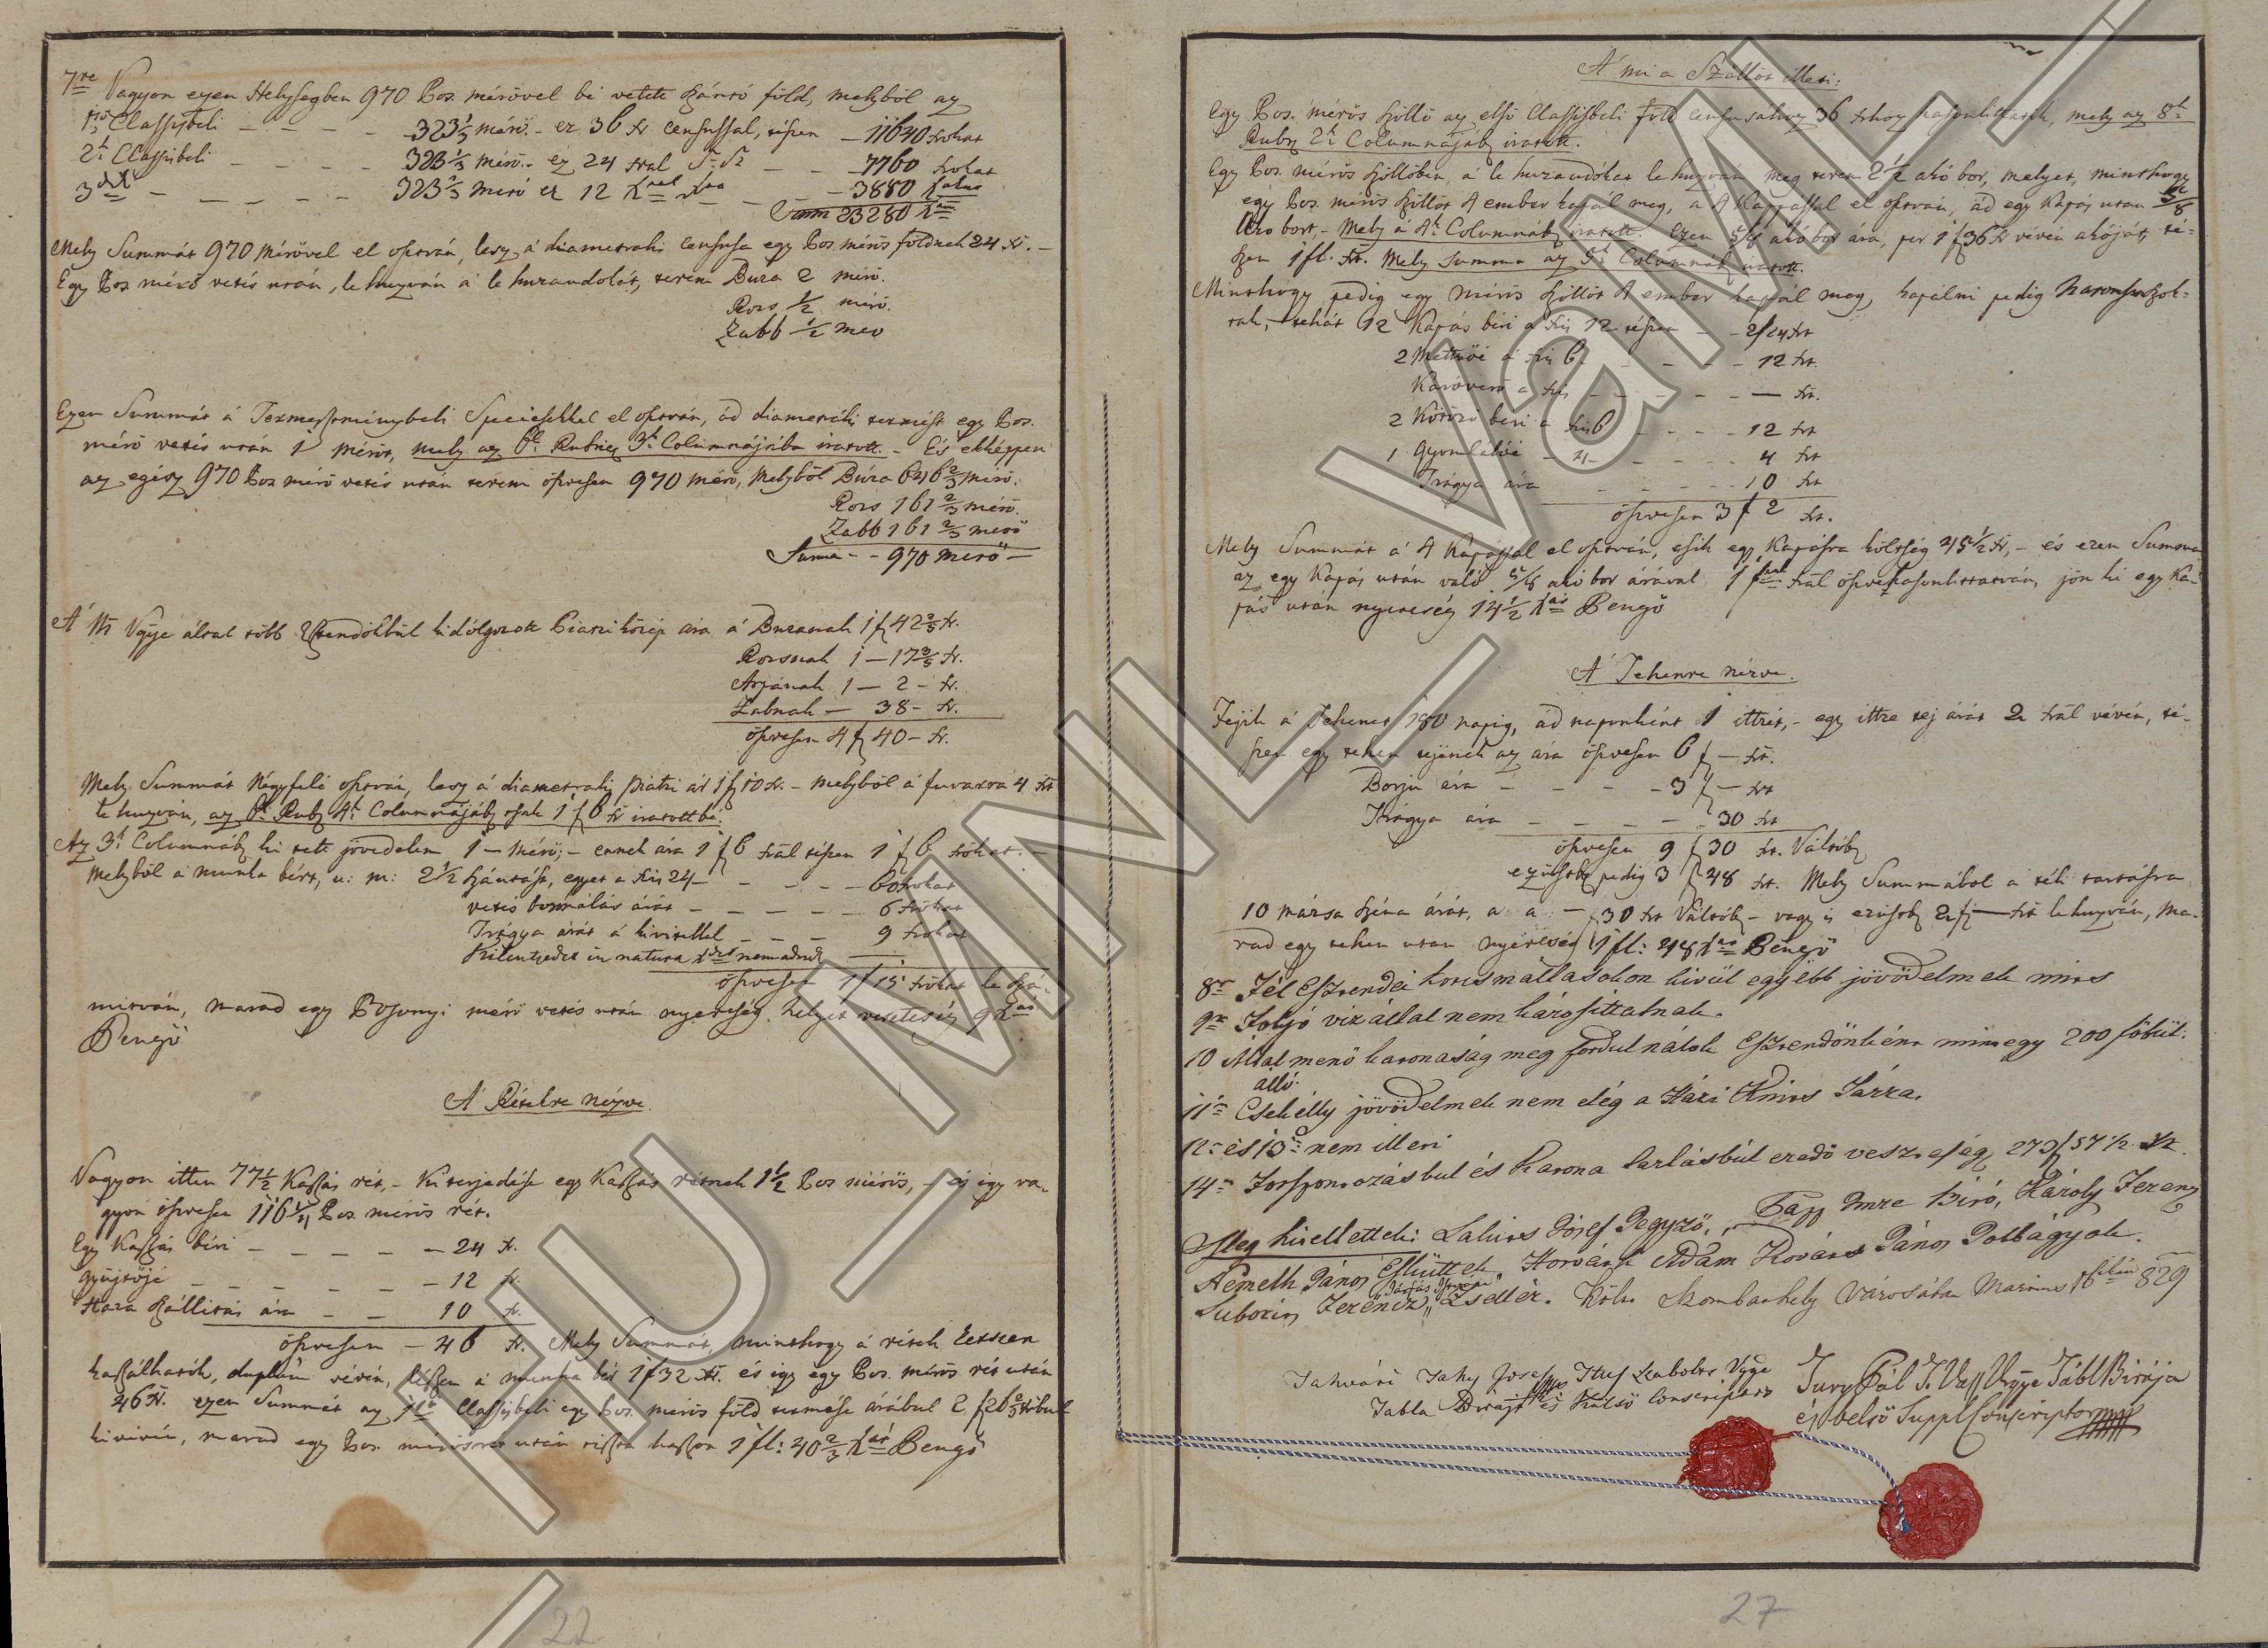 7re Vagyon ezen Helységben 970 Pos. mérövel bé vetett szántó föld, melyböl az
1sö Classisbeli — — — — 323 1/3 mérö - ez 36 kr censussal, tészen — 11640 krokat
2k Classisbeli — — — — 323 1/3 mérö - ez 24 kral — — 7760 krokat
3dik — — — — 323 1/3 mérö ez 12 — — 3880
Sum 23280
Mely Summát 970 mérövel el osztván, lesz á diametralis censusa egy Pos. mérös földnek 24 kr. —
Egy Pos mérö vetés után, le huzván á le huzandokat, terem Buza 2 mérö.
Ros 1/2 mérö.
Zabb 1/2 merö
Ezen Summát á Termesztménybeli Speciesekkel el osztván, ád diametrális termést egy Pos.
mérö vetés után 1 mérös, mely az 6k Rubrica 3k Columnájába iratott. - És ekképpen
az egész 970 Pos mérö vetés után terem öszvesen 970 mérö, Melyböl Búza 646 2/3 mérö.
Ros 161 2/3 mérö.
Zabb 161 2/3 merö
Suma - - 970 merö —
Á Ns Vgye által több Esztendökbül kidolgozott Piaczi közép ára á Buzanak 1 f 42 2/5 kr.
Rosnak 1 — 17 3/5 kr.
Árpának 1 — 2 - kr.
Zabnak — 38 - kr.
öszvesen 4 f 40 - kr.
Mely Summát Négyfelé osztván, lesz á diametralis piatzi ár 1 f 10 kr. - melyböl á fuvarra 4 kr
le huzván, az 6k Rub 4k Columnájáb csak 1 f 6 kr iratott be.
Az 3k Columnáb ki tett jövedelem 1 — mérö; - ennek ára 1 f 6 kral tészen 1 f 6 krokat. —
Melyböl á munka bért, u: m: 2 1/2 szántást, egyet a kr 24 — — — — 60 krokat
vetés boronálás árát — — — — 6 krokat
Trágya árát á kivitellel — — — 9 krokat
Kilentzedet in natura nem adnak —
öszvesen 1 f 15 krokat le szá-
mitván, marad egy Posonyi mérö vetés után nyereség helyet veszteség 9
Pengö
Á Rétekre nézve.
Vagyon itten 77 1/2 Kaszás rét, - Kiterjedése egy Kaszás rétnek 1 1/2 Pos mérös, - és igy va-
gyon öszvesen 116 1/4 Pos. mérös rét.
Egy Kaszás béri — — — — — 24 kr.
Gyüjtöjé — — — — — 12 kr.
Haza szállitás ára — — 10 kr.
öszvesen — 46 kr. Mely Summát, minthogy á rétek kétszer
kaszálhatók, duplán vévén, lészen á munka bér 1 f 32 kr. és igy egy Pos. mérös rét után
46 kr. ezen Summát az 1sö Classisbeli egy Pos. mérös föld termése árábul 2 f 26 2/3 kribul
ki vévén, marad egy Pos. mérös rét után tiszta haszon 1 fl: 40 2/3 Pengö
Á mi a Szöllöt illeti:
Egy Pos. mérös szöllö az elsö Classisbeli föld censusához 36 krhoz hasonlittatik, mely az 8k
Rub 2k Columnájáb iratott.
Egy Pos. mérös szöllöben, á le huzandókat le huzván meg terem 2 1/2 akó bor, melyet, minthogy
egy Pos. mérös szöllöt 4 ember kapál meg, a 4 Kapással el osztván, ád egy Kapás utan 5/8
Akó bort, - Mely á 4k Columnáb iratott. Ezen 5/8 akó bor ára, per 1 f 36 kr vévén akóját, té-
szen 1 fl. kr. Mely Summa az 5k Columnáb iratott.
Minthogy pedig egy mérös szöllöt 4 ember kapál meg, kapálni pedig háromszor szok-
tak, tehát 12 Kapás béri a kr 12 tészen — 2 f 24 kr
2 Metszöé á kr 6 — — — — 12 kr.
Karóverö a kr — — — — — kr.
2 Kötözö béri a kr 6 — — — 12 kr
1 Gyomlálóé - 4 - — — — 4 kr
Trágya ára — — — — 10 kr
öszvesen 3 f 2 kr.
Mely Summát á 4 Kapással el osztván, esik egy Kapásra költség 45 1/2 kr, - és ezen Summa
az egy Kapás után való 5/8 akó bor árával 1 kral öszve hasonlittatván, jön ki egy Ka-
pás után nyereség 14 1/2 Pengö
Á Tehenre nézve.
Fejik á Tehenet 180 napig, ád naponként 1 ittzét, - egy ittze tej árát 2 kral vévén, té-
szen egy tehen tejének az ára öszvesen 6 f — kr.
Borju ára — — — — 3 f — kr
Trágya ára — — — — 30 kr
öszvesen 9 f 30 kr. Váltób
ezüstb pedig 3 f 48 kr. Mely Summábol a téli tartásra
10 mázsa széna árát, a — f 30 kr Váltób - vagy is ezüstb 2 f — kr le huzván, ma-
rad egy tehen utan nyereség 1 fl: 48 Pengö
8r Fél Esztendei korcsmállasokon kivül egyébb jövödelmek nincs
9r Folyó viz által nem károsittatnak.
10 Által menö katonaság meg fordul nálok Esztendönként mintegy 200 föbül
álló.
11r Csekélly jövödelmek nem elég a Házi Kints Tárra.
12r és 13r nem illeti
14r Forspontozásbul és Katona tartásbúl eredö veszteség 273 f 57 1/2 kr.
Meg hitellettek: Lakics Jósef Jegyzö, Papp Imre Biró, Károly Ferencz
Németh János Esküttek, Horváth Ádám Kováts János Polbágyok.
Suborits Ferentz, Zsellér. Költ Szombathely Városában Martius 16ikán 829
Tahvári Tahy Josef Ttes Szabolcs Vgye
Tabla Birája és Külsö Conscriptor
Jury Pál T. Vass Vgye Tábl Birája
és belsö Suppl Conscriptor
22
27
HU_MNL_VaML_I